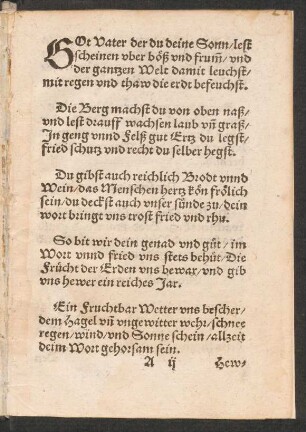 GOt Vater der du deine Sonn/lest
scheinen vber böß vnd frum̃/vnd
der gantzen Welt damit leuchst/
mit regen vnd thaw die erdt befeuchst.
Die Berg machst du von oben naß/
vnd lest drauff wachsen laub vñ graß/
In geng vnnd Felß gut Ertz du legst/
fried schutz vnd recht du selber hegst.
Du gibst auch reichlich Brodt vnnd
Wein/das Menschen hertz kön frölich
sein/du deckst auch vnser sünde zu/dein
wort bringt vns trost fried vnd rhu.
So bit wir dein genad vnd güt/im
Wort vnnd fried vns stets behüt/Die
Frücht der Erden vns bewar/vnd gib
vns hewer ein reiches Jar.
Ein Fruchtbar Wetter vns bescher/
dem Hagel vñ vngewitter wehr/schnee
regen/wind/vnd Sonne schein/allzeit
deim Wort gehorsam sein.
A ij Hew-